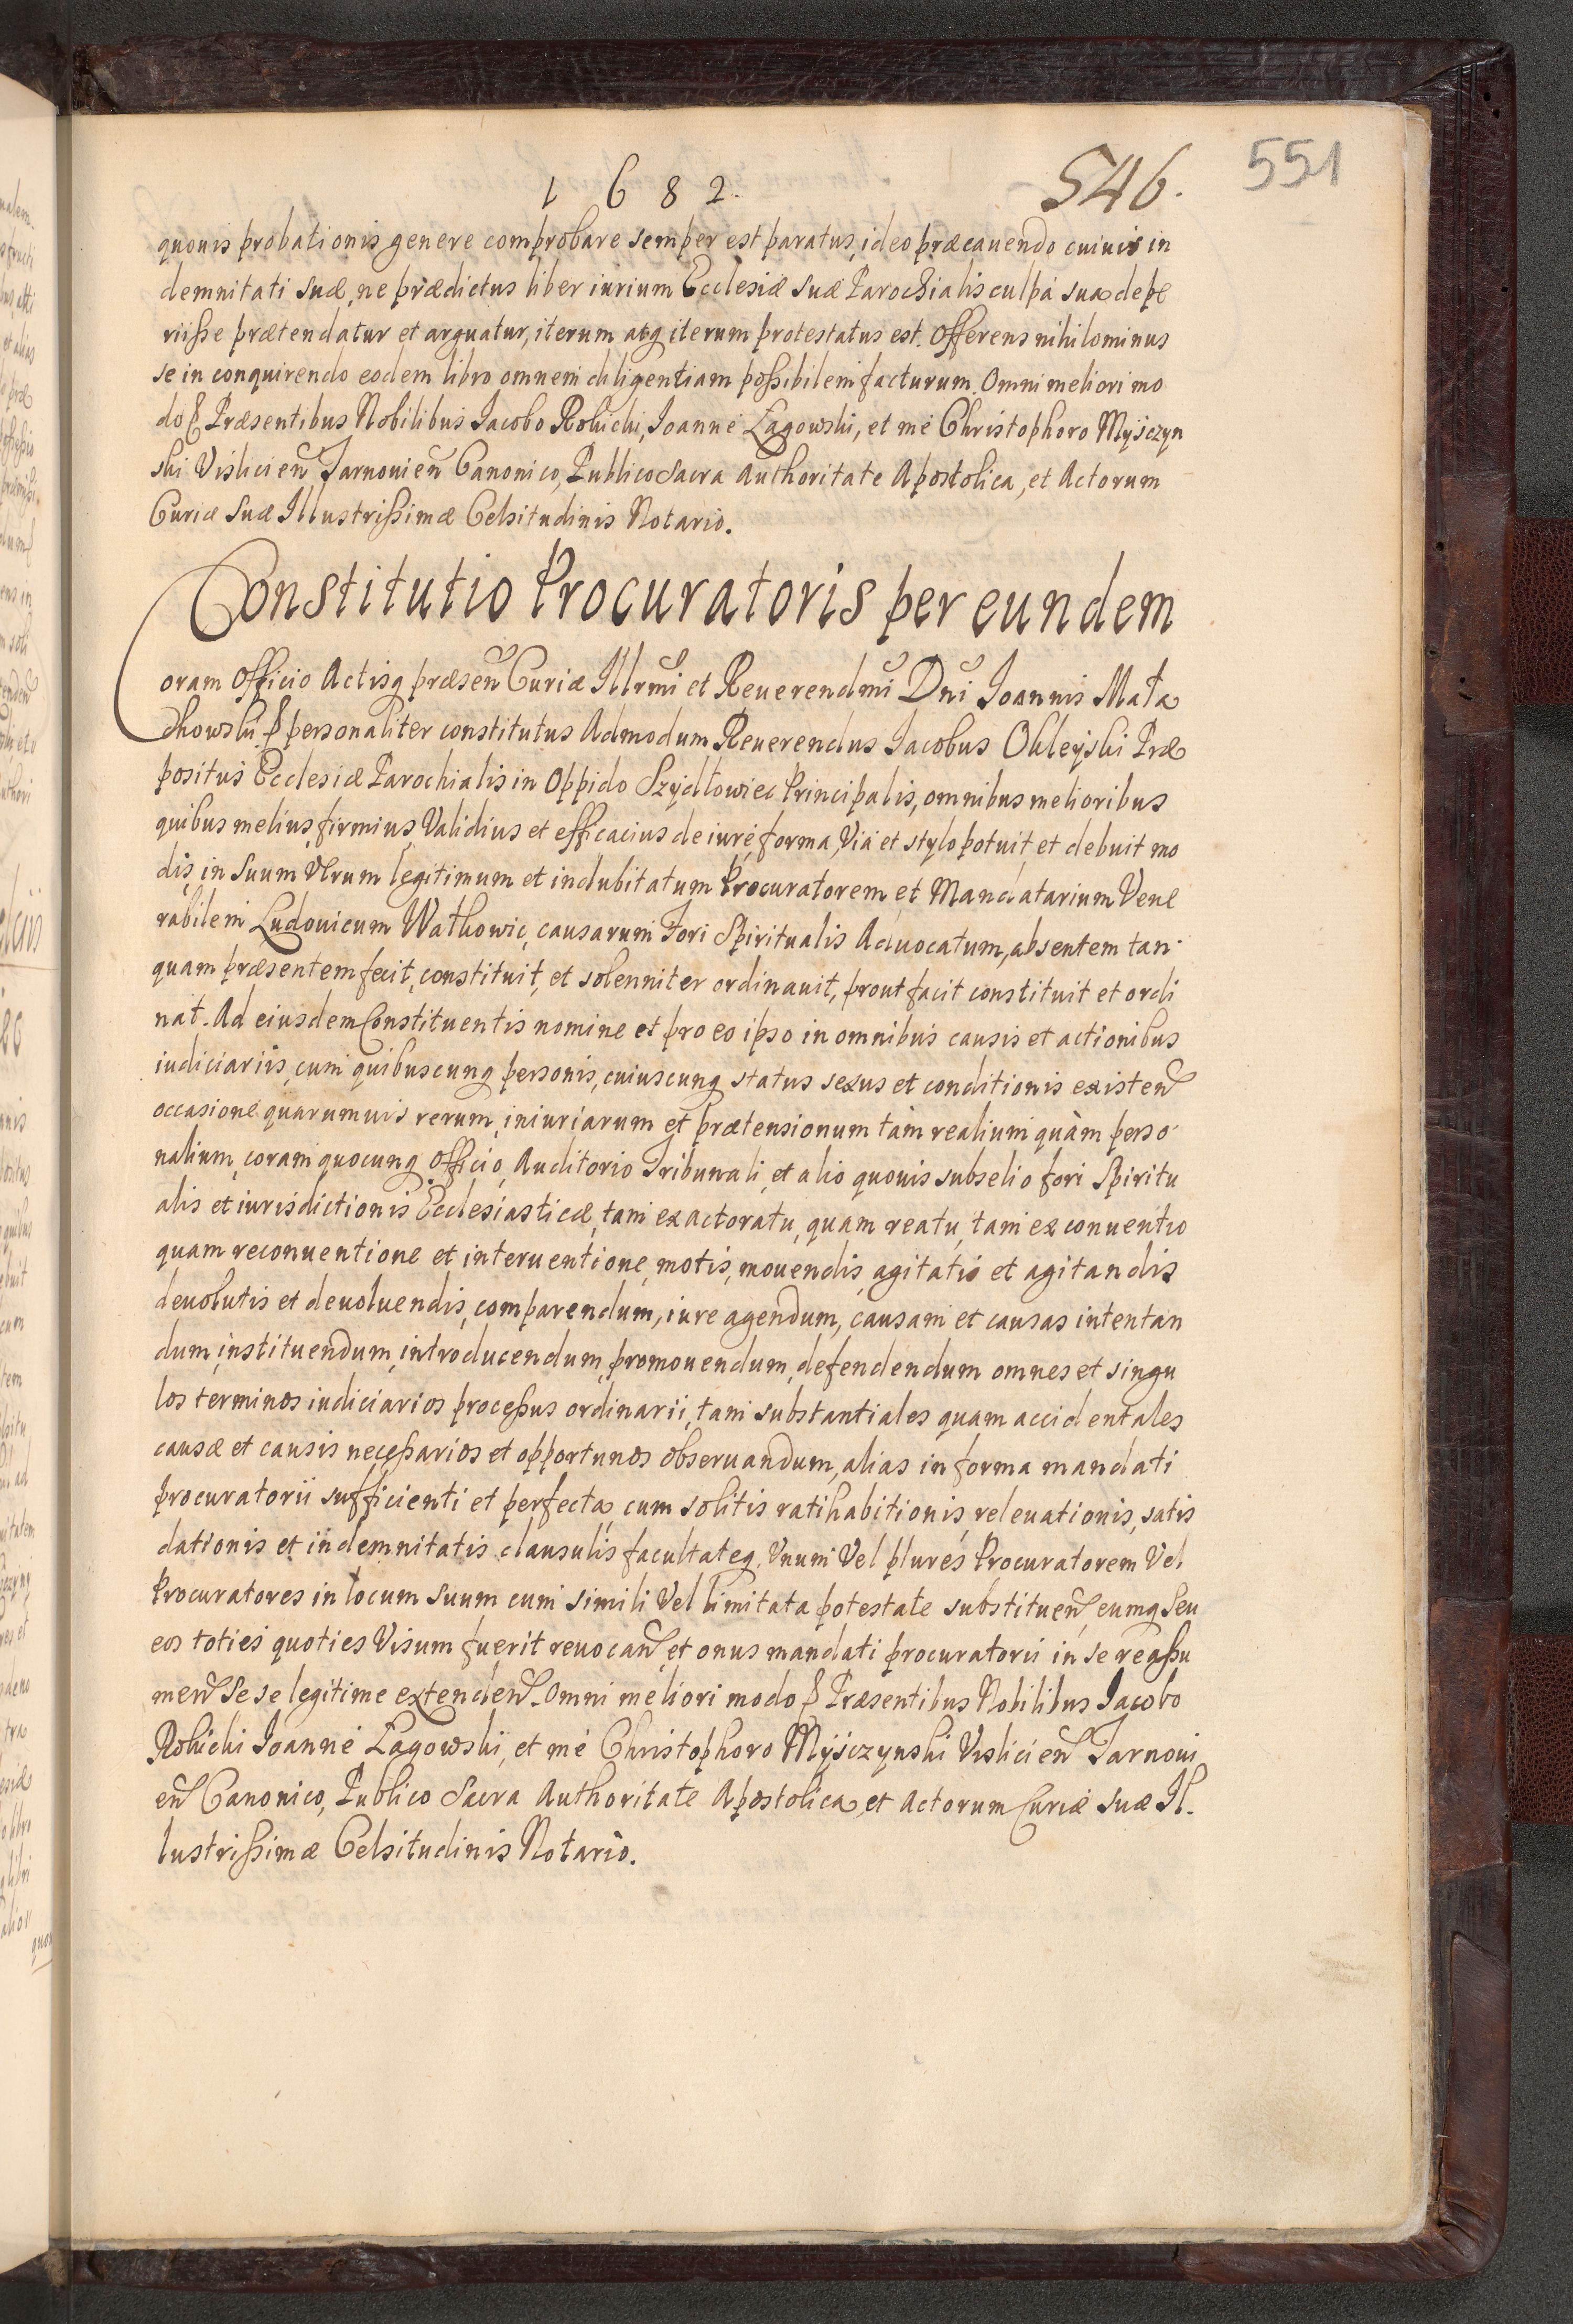 1682.
546.
551
quouis probationis genere comprobare semper est paratus, ideo præcauendo cuiuis in
demnitati suæ, ne prædictus liber iurium Ecclesiæ suæ Parochialis culpa sua depe
riisse prætendatur et arguatur, iterum atq iterum protestatus est. Offerens nihilominus
se in conquirendo eodem libro omnem diligentiam possibilem facturum. Omni meliori mo
do Præsentibus Nobilibus Iacobo Rokicki, Ioanne Łagowski, et me Christophoro Myjsczyn
ski Vislicien Tarnouien Canonico, Publico Sacra Authoritate Apostolica, et Actorum
Curiæ Suæ Illustrissimæ Celsitudinis Notario.
Constitutio Procuratoris per eundem
Coram Officio Actisq præsen Curiæ Illrmi et Reuerendmi Dni Ioannis Mała
chowski personaliter constitutus Admodum Reuerendus Iacobus Okleyski Præ
positus Ecclesiæ Parochialis in Oppido Szydłowiec Principalis, omnibus melioribus
quibus melius, firmius, Validius et efficacius de iure, forma, Via et stylo potuit et debuit mo
dis, in Suum Vlrum legitimum et indubitatum Procuratorem et Mandatarium Vene
rabilem Ludouicum Wathowic, causarum Fori Spiritualis Aduocatum, absentem tan
quam præsentem fecit, constituit, et solenniter ordinauit, prout facit constituit et ordi
nat. Ad eiusdem Constituentis nomine et pro eo ipso in omnibus causis et actionibus
iudiciariis, cum quibuscunq personis, cuiuscunq status sexus et conditionis existen
occasione quarumuis rerum, iniuriarum et prætensionum tàm realium quàm perso
nalium, coram quocunq Officio, Auditorio Tribunali, et alio quouis subselio fori Spiritu
alis et iurisdictionis Ecclesiasticæ, tam ex actoratu, quam reatu, tam ex conuentio
quam reconuentione et interuentione, motis, mouendis, agitatis et agitandis
deuolutis et deuoluendis, comparendum, iure agendum, causam et causas intentan
dum, instituendum, introducendum, promouendum, defendendum omnes et singu
los terminos iudiciarios processus ordinarii, tam substantiales quam accidentales
causæ et causis necessarios et opportunos obseruandum, alias in forma mandati
procuratorii sufficienti et perfecta, cum solitis ratihabitionis, releuationis, satis
dationis et indemnitatis clausulis facultateq. Vnum Vel plures Procuratorem Vel
Procuratores in locum Suum cum simili Vel limitata potestate substituen, eumq Seu
eos toties quoties Visum fuerit reuocan, et onus mandati procuratorii in se reassu
men Se se legitime extenden. Omni meliori modo Præsentibus Nobilibus Iacobo
Rokicki Ioanne Łagowski, et me Christophoro Myjsczynski Vislicien Tarnoui
en Canonico, Publico Sacra Authoritate Apostolica, et Actorum Curiæ Suæ Il
lustrissimæ Celsitudinis Notario.